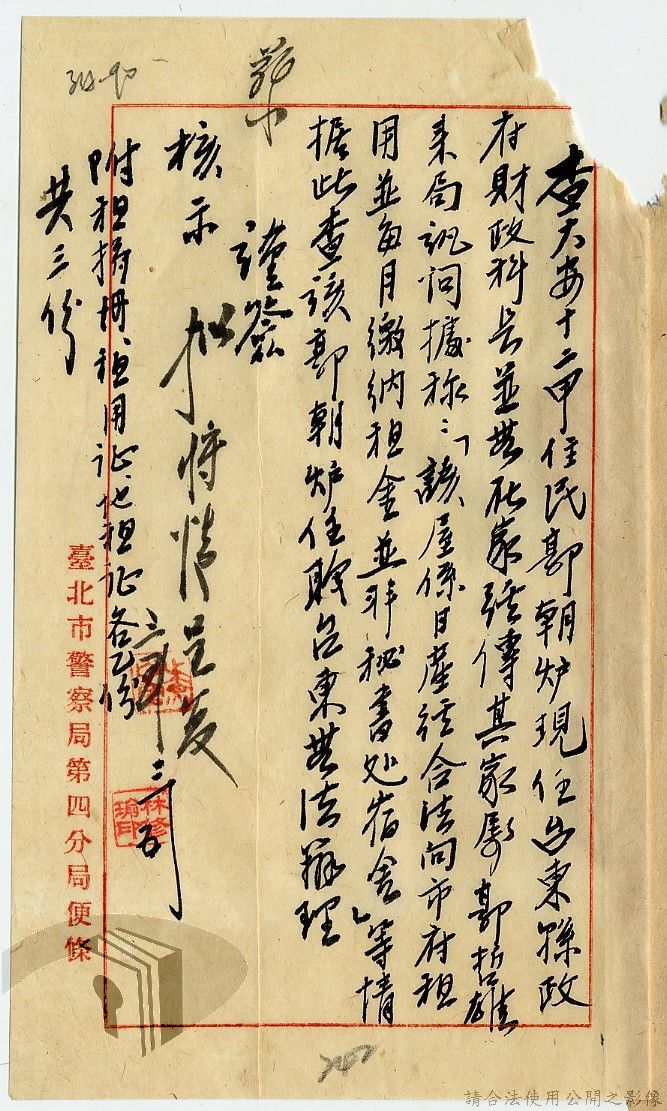 查大安十二甲住民郭朝炉現任台東縣政
府財政科長並無在家經傳其家屬郭哲雄
來局訊問據称：「該屋係日產經合法向市府租
用並每月繳納租金並非秘書处宿舍」等情
据此查該郭朝炉任職台東無法辦理
謹簽
核示
拟將情呈复
附租捐冊、租用证、地租证各乙份
共三份
林修瑜印
臺北市警察局第四分局便條
請合法使用公開之影像